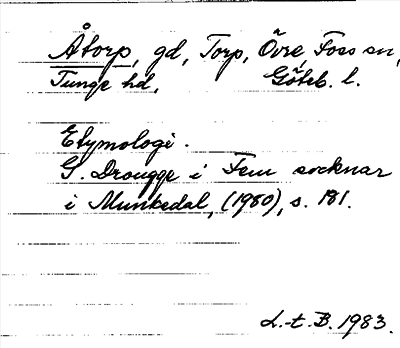 Åtorp, gd, Torp, Övre, Foss sn,
Tunge hd, Göteb. l.
Etymologi.
G. Drougge i Fem socknar
i Munkedal, (1980), s. 181.
L.-t. B. 1983.